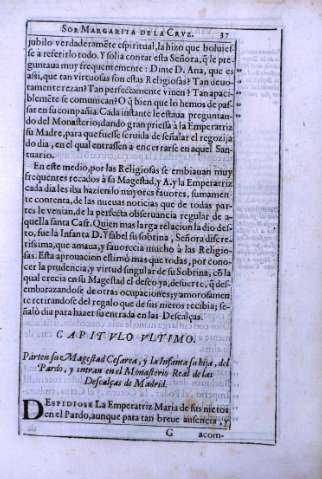 SOR MARGARITA DE LA CRVZ. 37
jubilo verdaderamēte espiritual, la hizo que boluies-
se a referirlo todo. Y solia contar esta Señora, q̄ le pre-
guntaua muy frequentemente: Dime D. Ana, que es
assi, que tan virtuosas son estas Religiosas? Tan deuo-
tamente rezan? Tan perfectamente viuen? Tan apaci-
blemēte se comunican? O q̄ bien que lo hemos de pas-
sar en su compañia. Cada instante le estaua preguntan-
do del Monasterio, dando gran priessa à la Emperatriz
su Madre, para que fuesse seruida de señalar el regozija
do dia, en el qual entrassen a encerrarse en aquel San-
tuario.
En este medio, por las Religiosas se embiauan muy
frequentes recados à su Magestad, y A. y la Emperatriz
cada dia les iba haziendo mayores fauores, sumamen-
te contenta, de las nueuas noticias que de todas par-
tes le venian, de la perfecta obseruancia regular de a-
quella santa Casa. Quien mas larga relacion la dio des-
to, fue la Infanta D. Ysabel su sobrina, Señora discre-
tissima, que amaua, y fauorecia mucho à las Religio-
sas. Esta aprouacion estimò mas que todas, por cono-
cer la prudencia, y virtud singular de su Sobrina, cō la
qual crecia en su Magestad el desseo ya, de suerte, q̄ des-
embarazandose de otras ocupaciones, y amorosamen
te retirandose del regalo que de sus nietos recibia; se-
ñalò dia para hazer su entrada en las Descalças.
CAPITVLO VLTIMO.
Parten su Magestad Cesarea, y la Infanta su hija, del
Pardo, y entran en el Monasterio Real de las
Descalças de Madrid.
DESPIDIOSE La Emperatriz Maria de sus nietos
en el Pardo, aunque para tan breue ausencia, y
G acom-